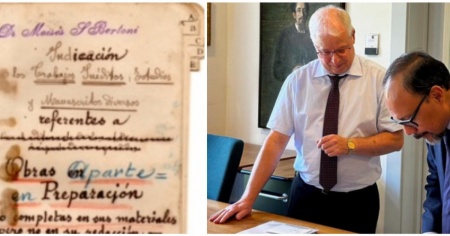 Dr Moisés S Bertoni
Indicación
los Trabajos Inéditos, Estudios
y Manuscritos diversos
referentes a
Obras en Aparte =
en Preparación
o completas en sus materiales
pero no en su redacción